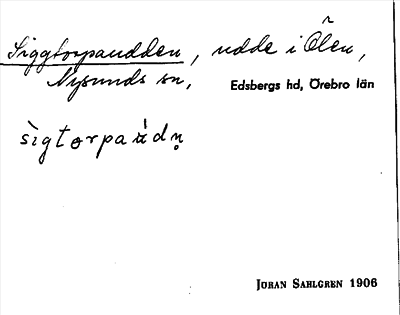 Siggtorpaudden, udde i Ölen,
Nysunds sn,
Edsbergs hd, Örebro län
sìgtorpaúdn̥
Jöran Sahlgren 1906